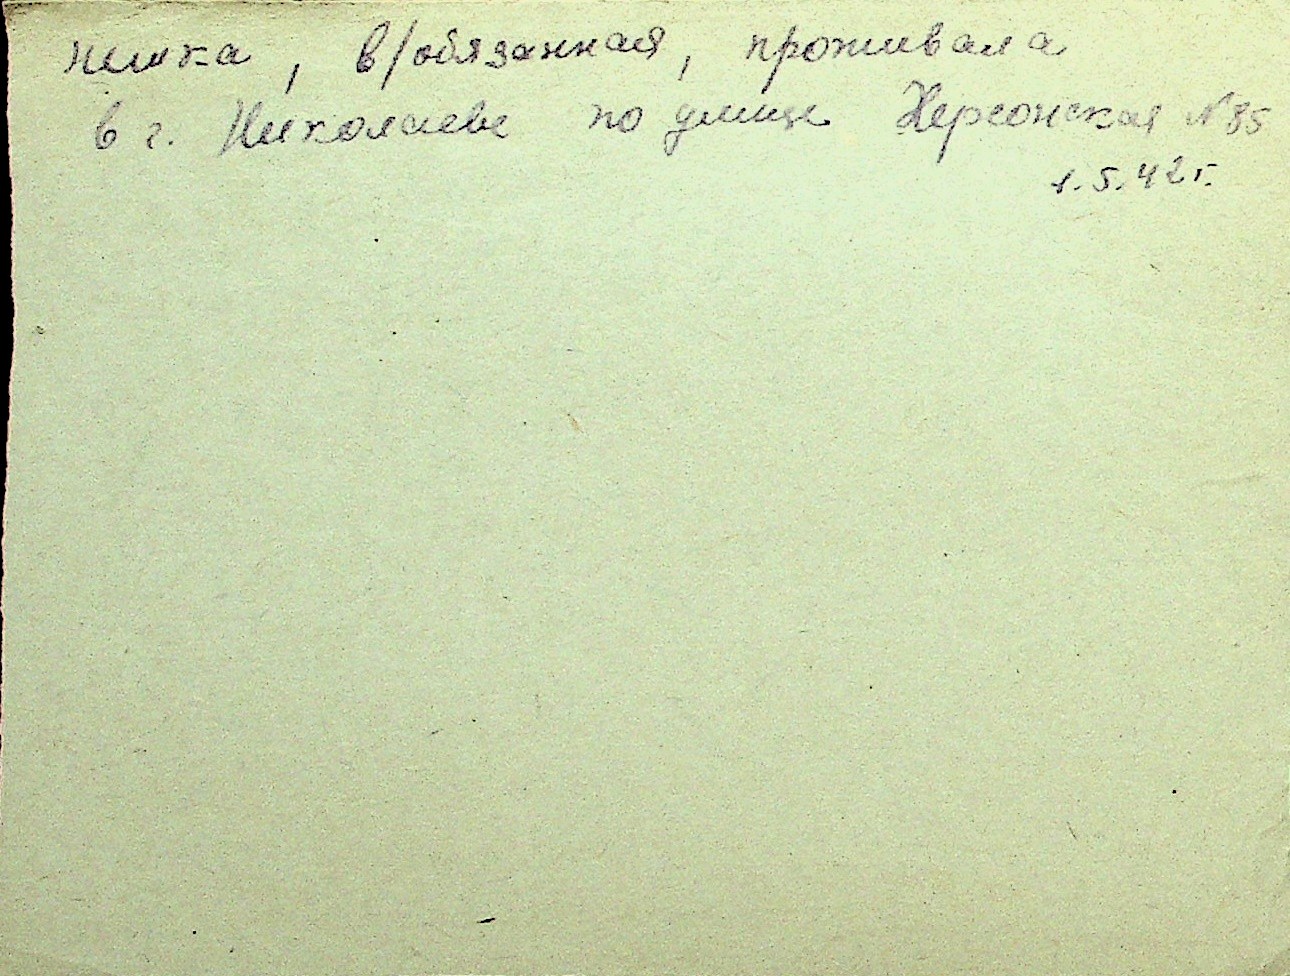 немка, в/обязанная, проживала
в г. Николаеве по улице Херсонская №85
1.5.42г.